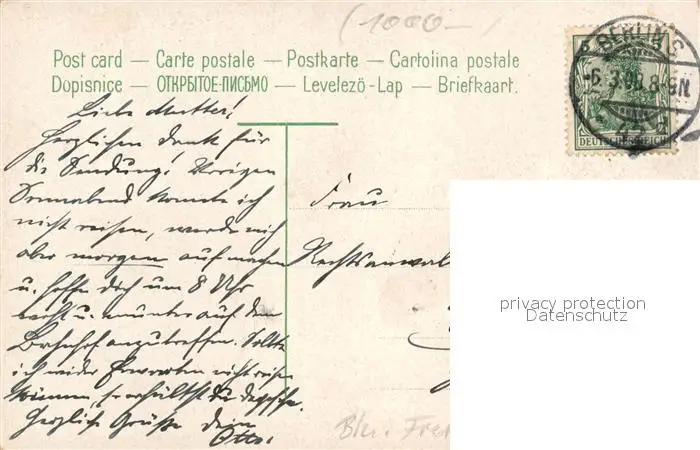 (1000.–)
Post card — Carte postale — Postkarte — Cartolina postale
Dopisnice — ОТКРЫТОЕ-ПИСЬМО — Levelező-Lap — Briefkaart.
BERLIN S.
-6.3.06.8-9N
* 42 *
DEUTSCHES REICH
Liebe Mutter!
Herzlichen Dank für
die Sendung. Vorigen
Sonnabend konnte ich
nicht reisen, werde mich
aber morgen aufmachen
u. hoffe dich um 8 Uhr
recht u. munter auf dem
Bahnhof anzutreffen. Sollte
ich wider Erwarten nicht reisen
können, so erhältst du Depesche.
Herzliche Grüße dein
Otto.
Frau
Rechtsanwal
privacy protection
Datenschutz
Bln. Frei